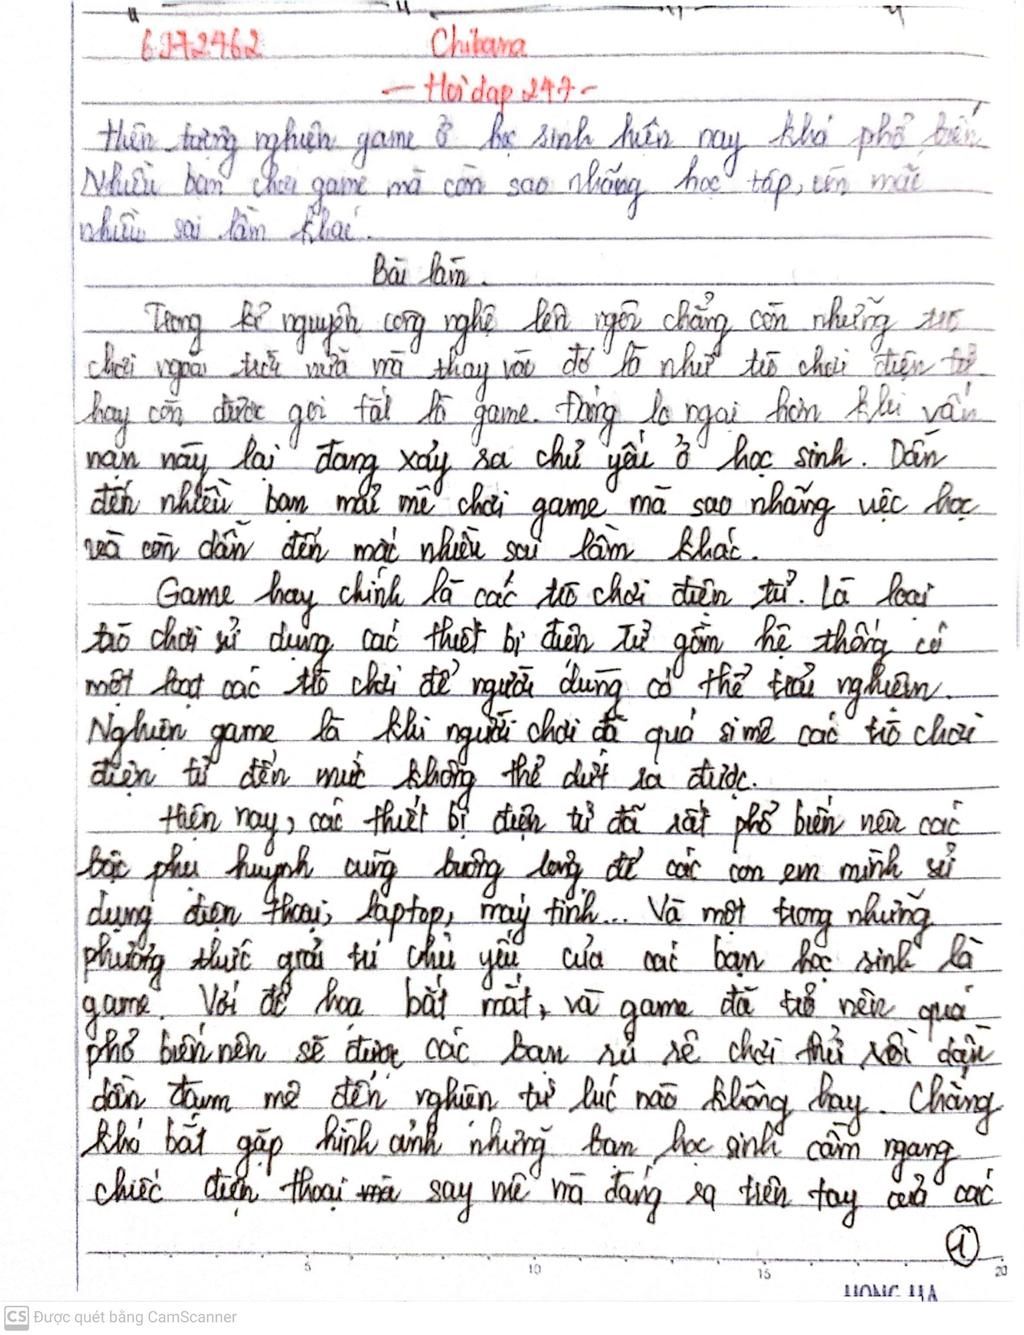 6272462 Chibana
- Hỏi đáp 247 -
Hiện tượng nghiện game ở học sinh hiện nay khá phổ biến
Nhiều bạn chơi game mà còn sao nhãng học tập, còn mắc
nhiều sai lầm khác.
Bài làm.
Trong kỉ nguyên công nghệ lên ngôi chẳng còn những trò
chơi ngoài trời nữa mà thay vào đó là như trò chơi điện tử
hay còn được gọi tắt là game. Đáng lo ngại hơn khi vấn
nạn này lại đang xảy ra chủ yếu ở học sinh. Dẫn
đến nhiều bạn mải mê chơi game mà sao nhãng việc học
và còn dẫn đến mắc nhiều sai lầm khác.
Game hay chính là các trò chơi điện tử. Là loại
trò chơi sử dụng các thiết bị điện tử gồm hệ thống có
một loạt các trò chơi để người dùng có thể trải nghiệm.
Nghiện game là khi người chơi đã quá si mê các trò chơi
điện tử đến mức không thể dứt ra được.
Hiện nay, các thiết bị điện tử đã rất phổ biến nên các
bậc phụ huynh cũng buông lỏng để các con em mình sử
dụng điện thoại, laptop, máy tính... Và một trong những
phương thức giải trí chủ yếu của các bạn học sinh là
game. Với đồ họa bắt mắt, và game đã trở nên quá
phổ biến nên sẽ được các bạn rủ rê chơi thử rồi dần
dần đam mê đến nghiện từ lúc nào không hay. Chẳng
khó bắt gặp hình ảnh những bạn học sinh cầm ngang
chiếc điện thoại say mê mà đáng ra trên tay của các
1
5 10 15 20
HONG HA
CS Được quét bằng CamScanner